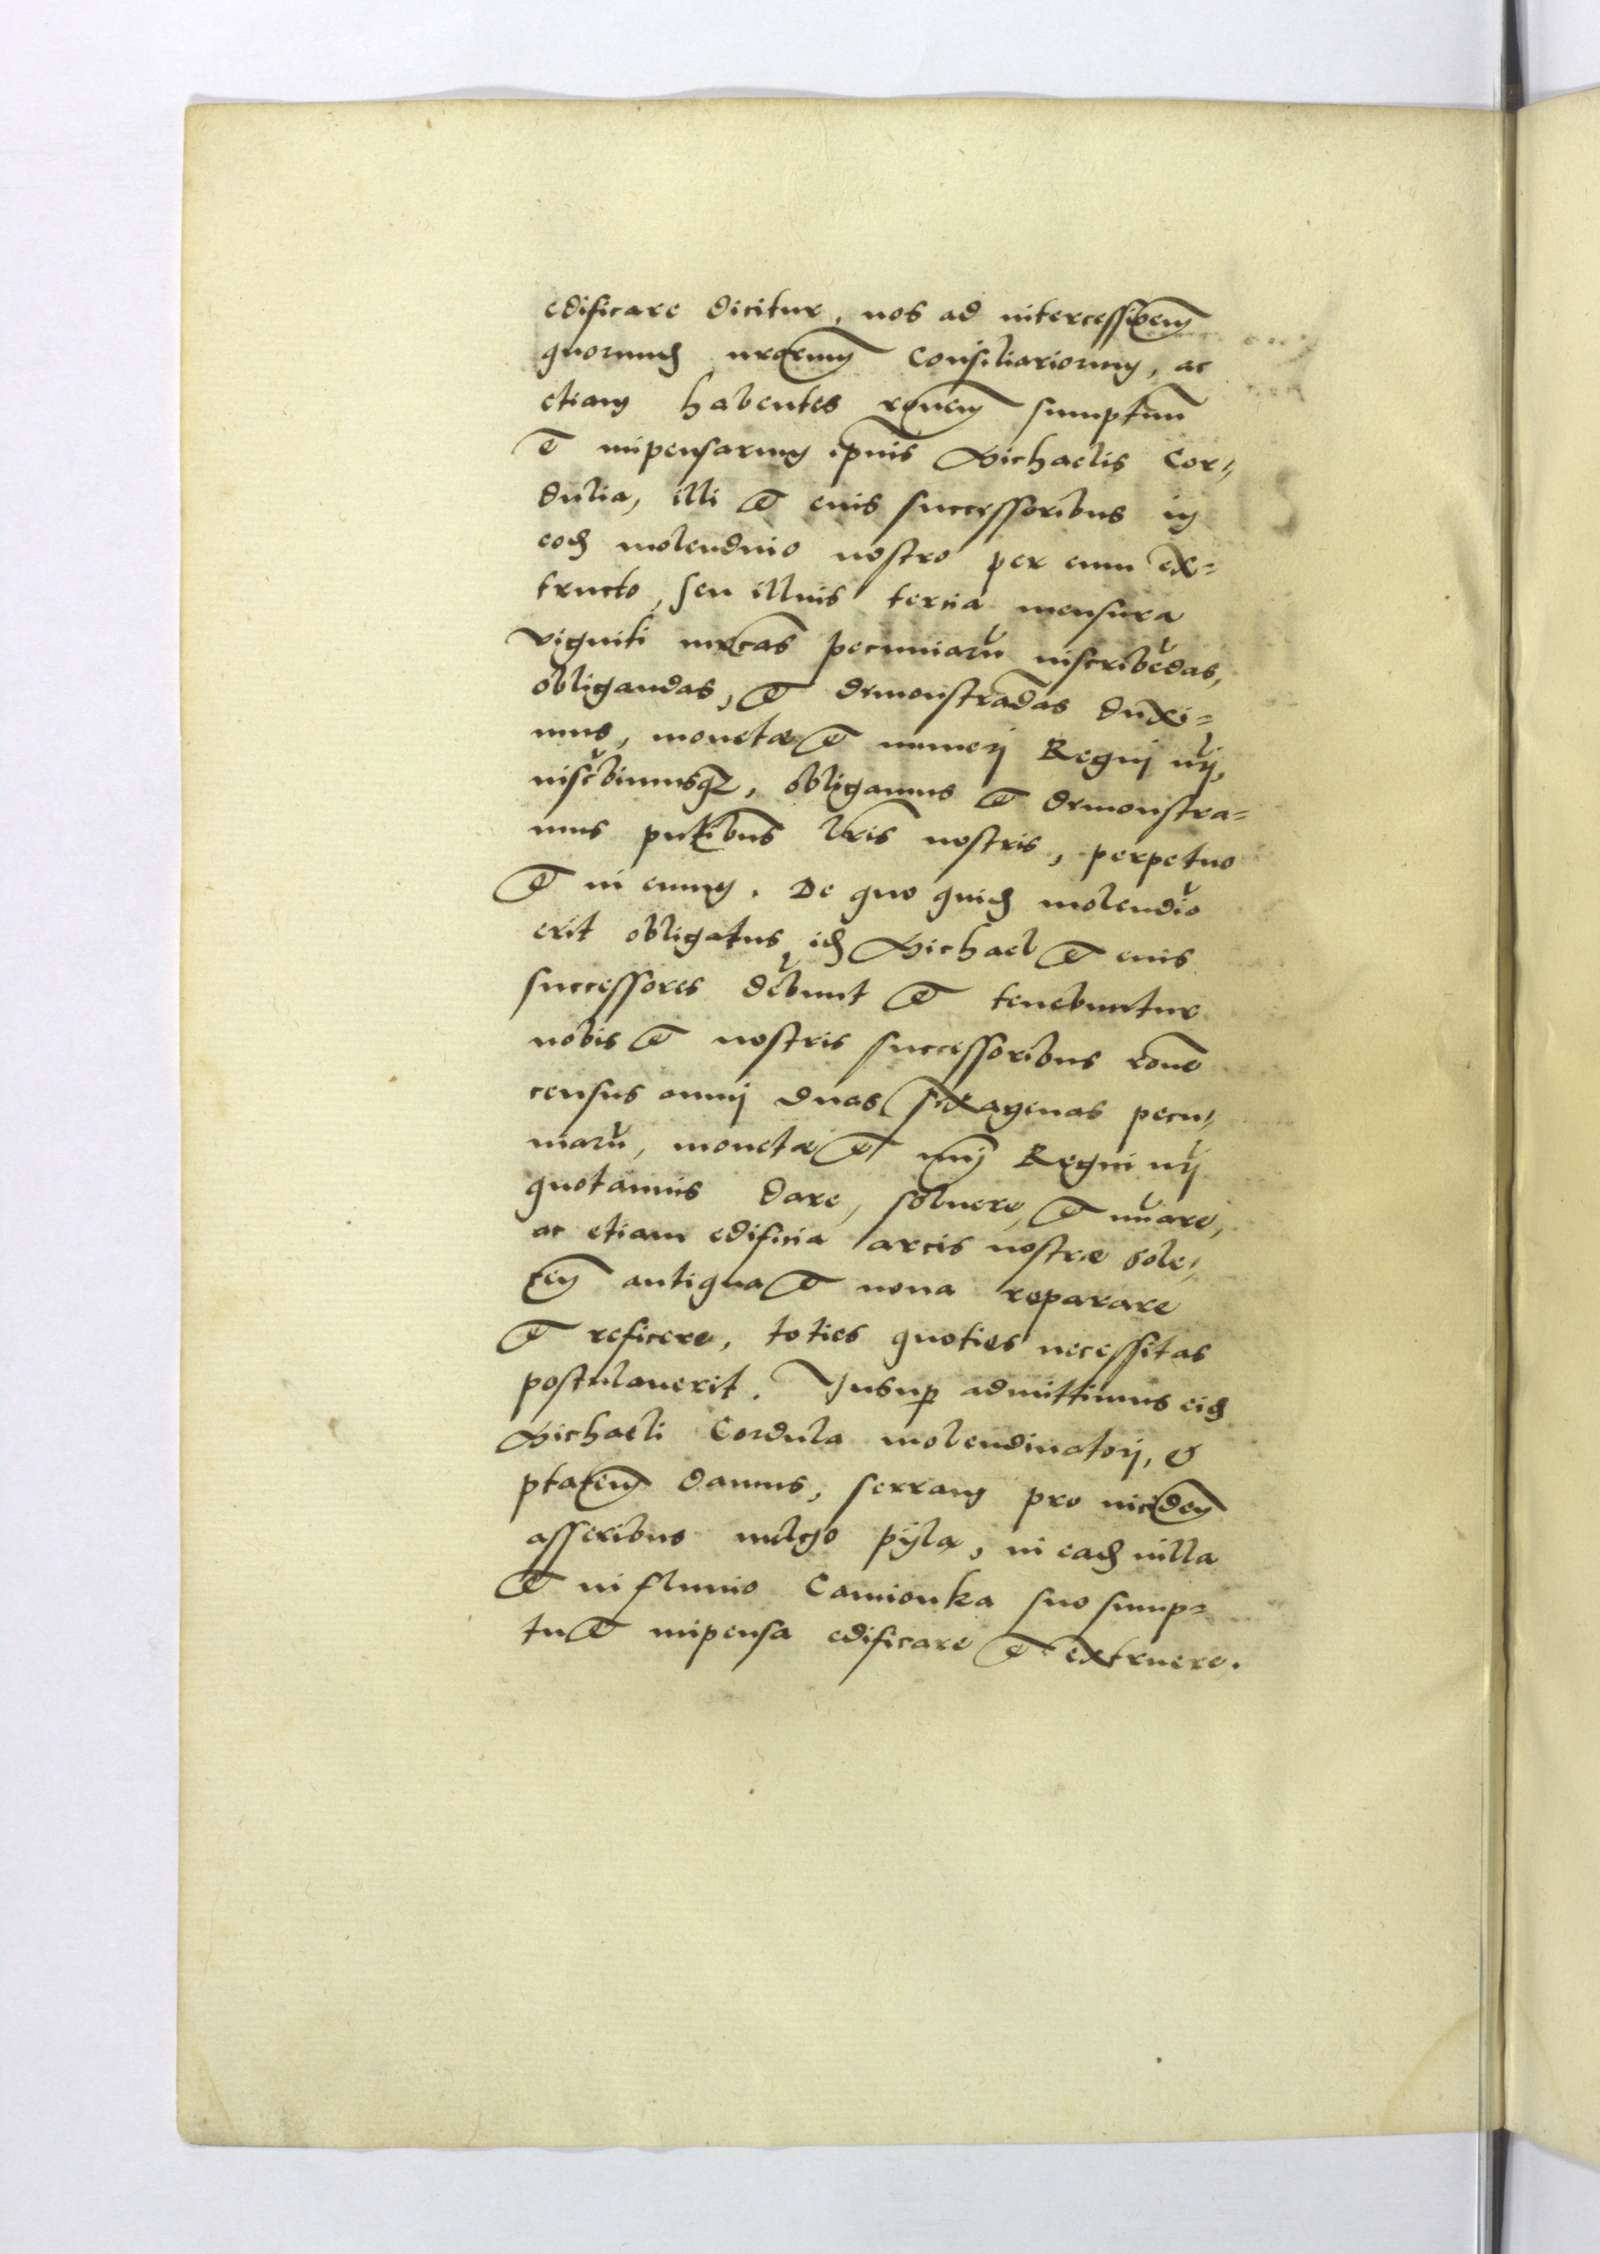 edificare dicitur, nos ad intercessioem
quorumd nrorum Consiliariorum, ac
etiam habentes ronem sumptuu
et impensarum ipius Michaelis Cor-
dulia, illi et eius successoribus in
eod molendino nostro per eum ex-
tructo, seu illius tercia mensura
viginti mrcas pecuniaru inscribedas,
obligandas, et demonstradas duxi-
mus, monetae et numeri Regni nri,
inscbimusq, obligamus et demonstra-
mus pntibus lris nostris, perpetuo
et in euum. De quo quid molendio
erit obligatus id Michael et eius
successores debunt et tenebuntur
nobis et nostris successoribus rone
census annij duas sexagenas pecu-
niaru, monetae et nuij Regni nri
quotannis dare, soluere, et nuare,
ac etiam edificia arcis nostrae Sole-
cen antiqua et noua reparare
et reficere, toties quoties necessitas
postulauerit. Insup admittimus eid
Michaeli Cordula molendinatorij, et
ptatem damus, serram pro incidem
asseribus uulgo pÿla, in ead uilla
et in fluuio Camionka suo sump-
tu et impensa edificare et extruere.